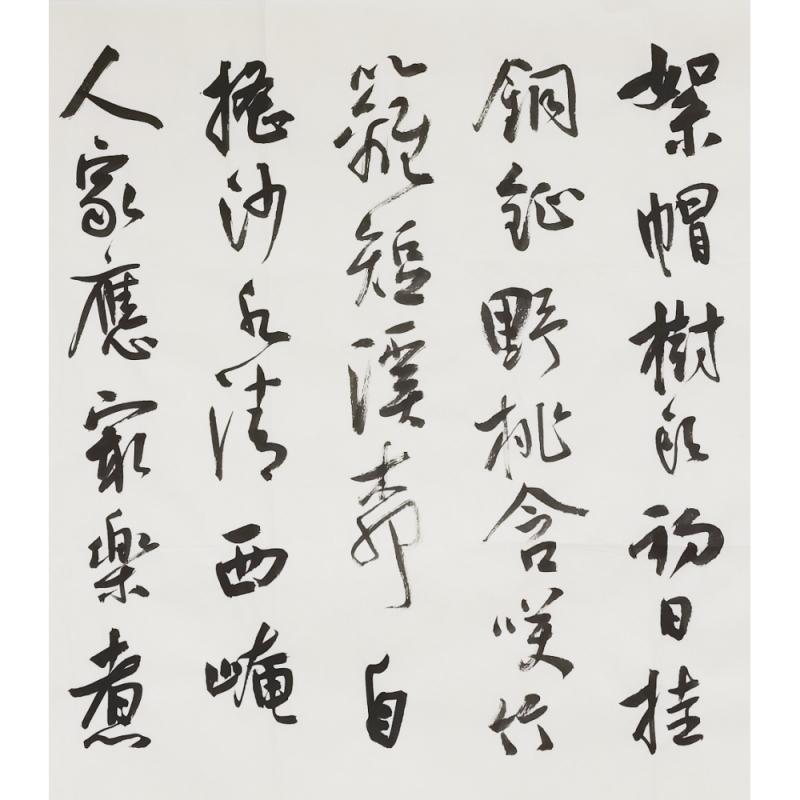 絮帽樹頭初日挂
銅鉦野桃含咲竹
籬短溪柳自
搖沙水清西崦
人家應冣樂煮